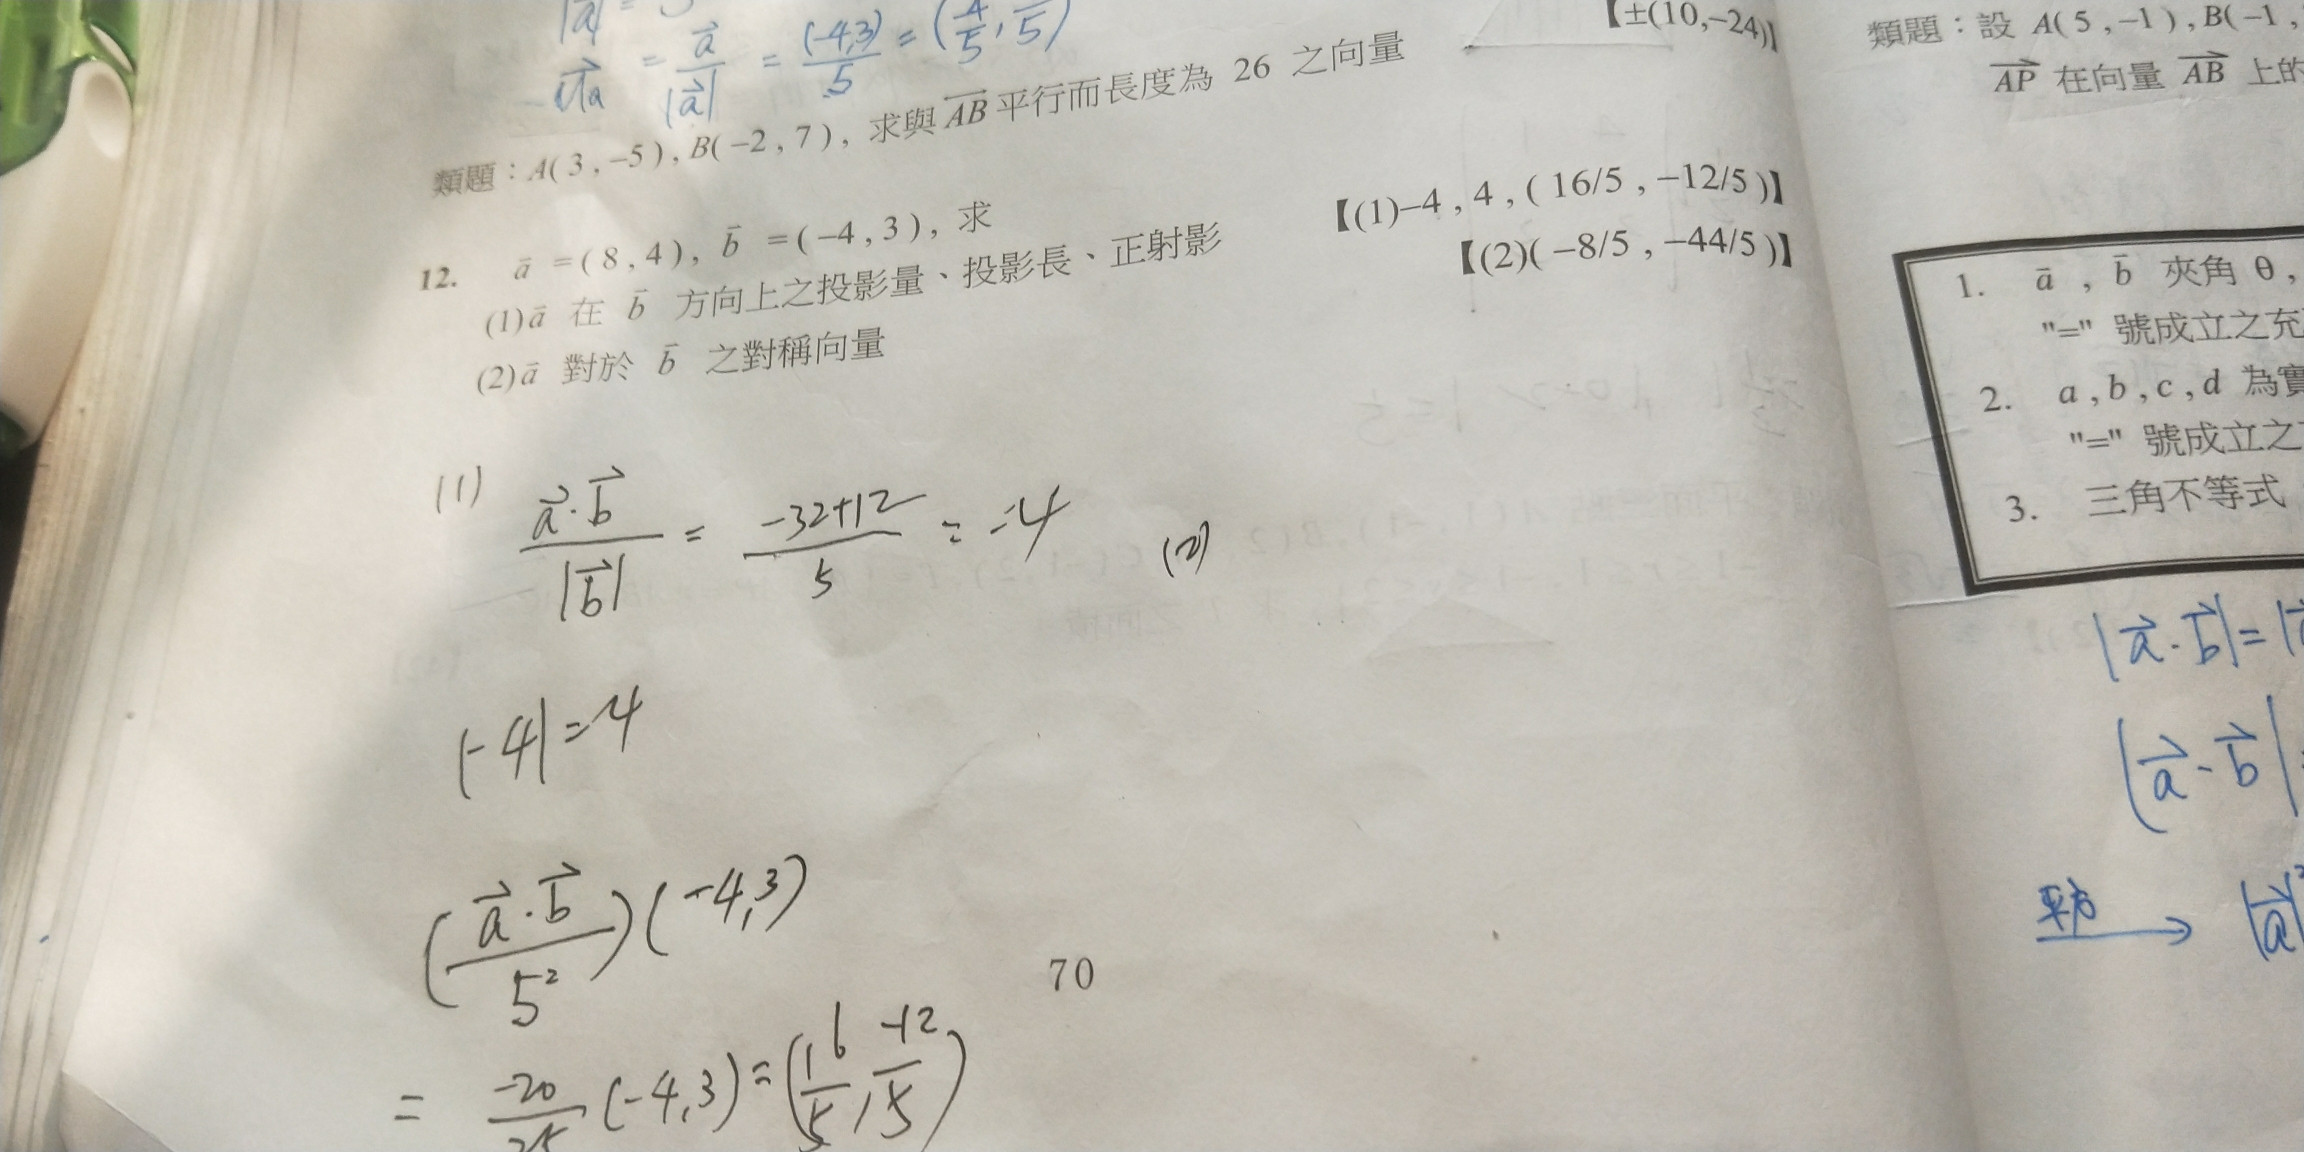 |a| =
= a/|a| = (-4,3)/5 = (4/5,
類題：A( 3 , –5 ) , B( –2 , 7 ) , 求與 AB 平行而長度為 26 之向量
【±(10,–24)】
12. a = ( 8 , 4 ) , b = ( –4 , 3 ) , 求
(1) a 在 b 方向上之投影量、投影長、正射影
【(1)–4 , 4 , ( 16/5 , –12/5 )】
(2) a 對於 b 之對稱向量
【(2)( –8/5 , –44/5 )】
(1) a·b/|b| = -32+12/5 = -4
(2)
|-4| = 4
(a·b/5²)(-4,3)
70
= -20/25 (-4,3) = (16/5, -12/5)
類題：設 A( 5 , –1 ) , B( –1 ,
AP 在向量 AB 上的
1. a , b 夾角 θ ,
"=" 號成立之充
2. a , b , c , d 為實
"=" 號成立之
3. 三角不等式
|a·b| =
|a·b|
平方 → |a|²